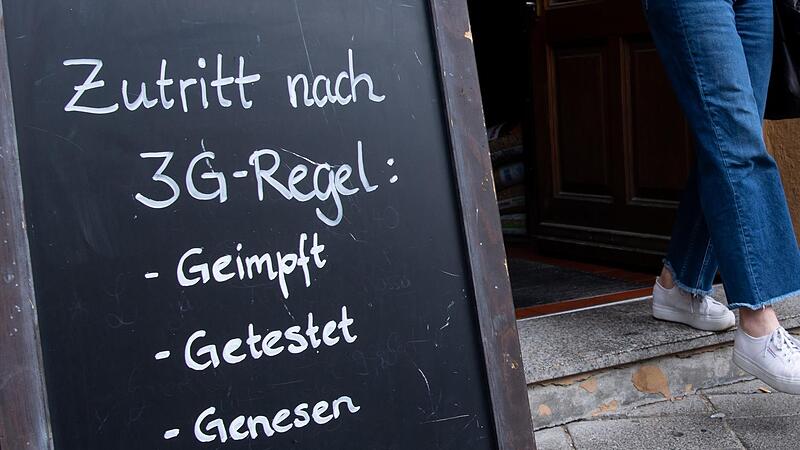 Zutritt nach
3G-Regel:
- Geimpft
- Getestet
- Genesen